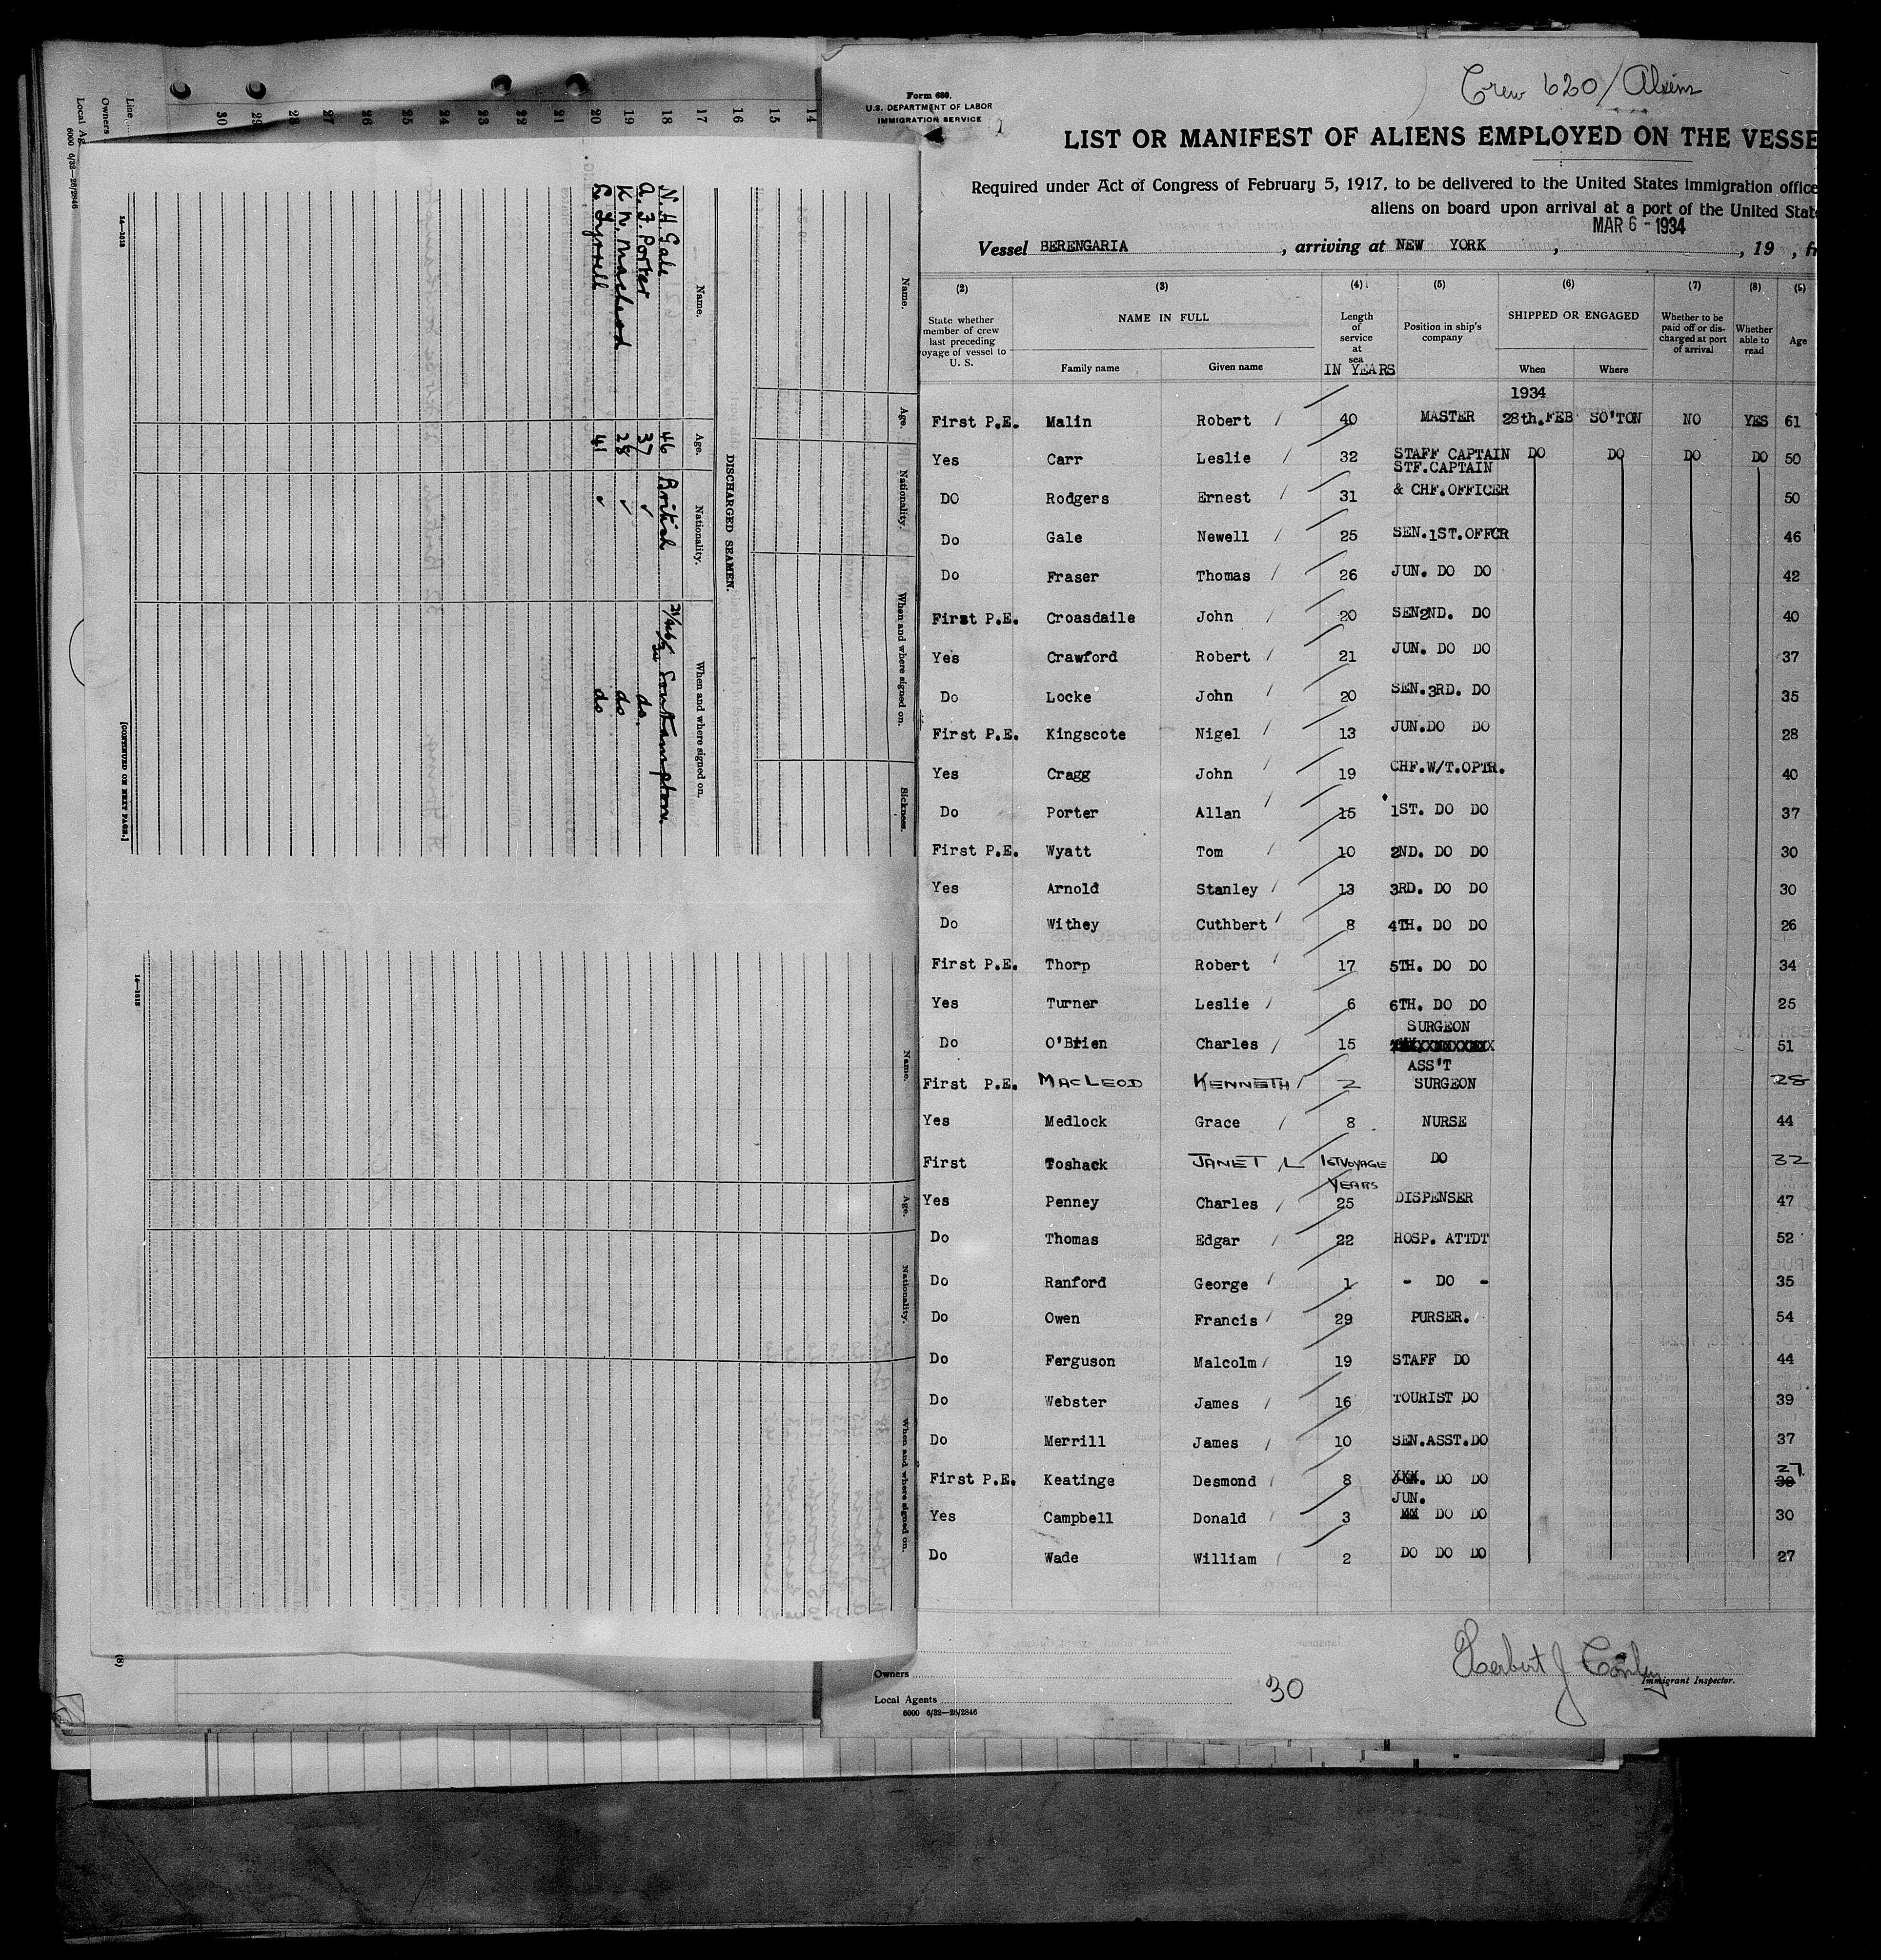 Crew 620 / Aliens
Form 680.
U.S. DEPARTMENT OF LABOR
IMMIGRATION SERVICE
LIST OR MANIFEST OF ALIENS EMPLOYED ON THE VESSE
Required under Act of Congress of February 5, 1917, to be delivered to the United States immigration office
aliens on board upon arrival at a port of the United Stat
MAR 6 - 1934
Vessel BERENGARIA, arriving at NEW YORK, , 19 , fr
(2) (3) (4) (5) (6) (7) (8)
State whether member of crew last preceding voyage of vessel to U. S.
NAME IN FULL
Family name Given name
Length of service at sea
IN YEARS
Position in ship's company
SHIPPED OR ENGAGED
When Where
Whether to be paid off or discharged at port of arrival
Whether able to read
Age
1934
First P.E. Malin Robert 40 MASTER 28th.FEB SO'TON NO YES 61
Yes Carr Leslie 32 STAFF CAPTAIN DO DO DO DO 50
STF.CAPTAIN
DO Rodgers Ernest 31 & CHF.OFFICER 50
Do Gale Newell 25 SEN.1ST.OFFCR 46
Do Fraser Thomas 26 JUN. DO DO 42
First P.E. Croasdaile John 20 SEN2ND. DO 40
Yes Crawford Robert 21 JUN. DO DO 37
Do Locke John 20 SEN.3RD. DO 35
First P.E. Kingscote Nigel 13 JUN.DO DO 28
Yes Cragg John 19 CHF.W/T.OPTR. 40
Do Porter Allan 15 1ST. DO DO 37
First P.E. Wyatt Tom 10 2ND. DO DO 30
Yes Arnold Stanley 13 3RD. DO DO 30
Do Withey Cuthbert 8 4TH. DO DO 26
First P.E. Thorp Robert 17 5TH. DO DO 34
Yes Turner Leslie 6 6TH. DO DO 25
SURGEON
Do O'Brien Charles 15 51
ASS'T
First P.E. MACLEOD KENNETH 2 SURGEON 28
Yes Medlock Grace 8 NURSE 44
First Toshack JANET L 1ST VOYAGE DO 32
YEARS
Yes Penney Charles 25 DISPENSER 47
Do Thomas Edgar 22 HOSP. ATTDT 52
Do Ranford George 1 - DO - 35
Do Owen Francis 29 PURSER. 54
Do Ferguson Malcolm 19 STAFF DO 44
Do Webster James 16 TOURIST DO 39
Do Merrill James 10 SEN.ASST.DO 37
27
First P.E. Keatinge Desmond 8 DO DO 30
JUN.
Yes Campbell Donald 3 DO DO 30
Do Wade William 2 DO DO DO 27
Owners
Local Agents
6000 6/32—26/2846
30
Herbert J Conley
Immigrant Inspector.
Name. Age. Nationality. When and where signed on. Sickness.
14 15 16 17 18 19 20 21 22 23 24 25 26 27 28 29 30
DISCHARGED SEAMEN.
Name. Age. Nationality. When and where signed on.
N. H Gale 46 British Southampton.
A. F. Porter 37 ✓ do.
K N. Macleod 28 ✓ do
L Tyrrell 41 ✓ do
[CONTINUED ON NEXT PAGE.]
14—1018
Name. Age. Nationality. When and where signed on.
14—1018
(8)
Line
Owners
Local Ag
6000 6/32—26/2846